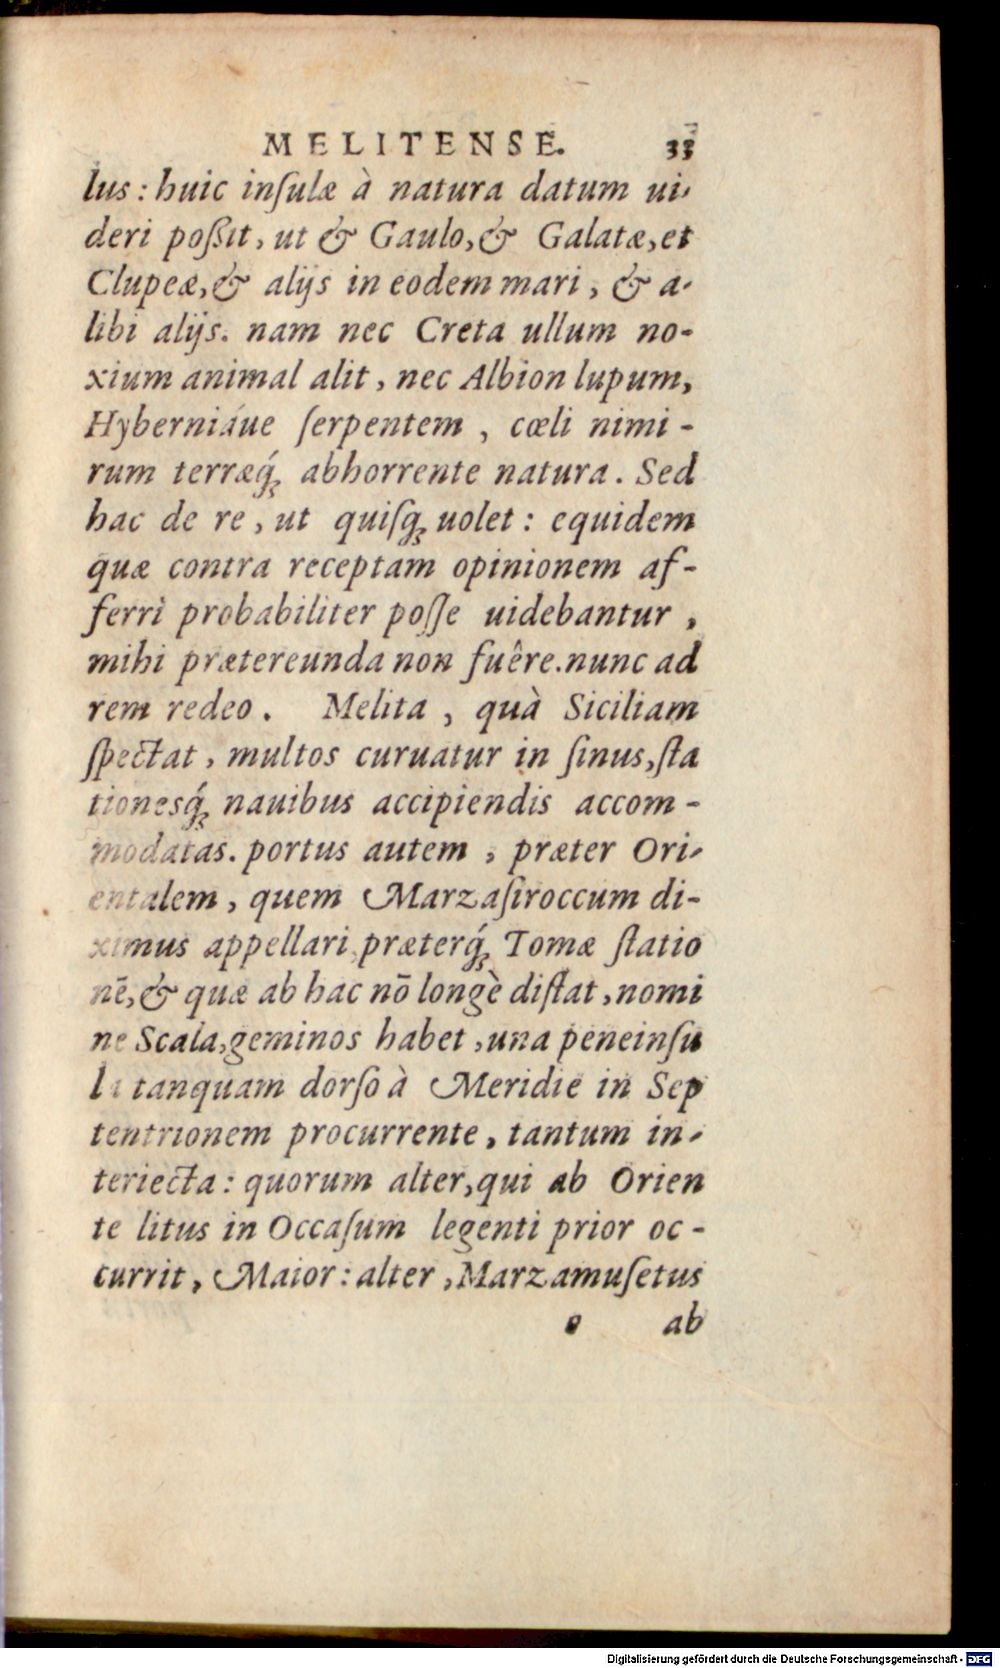 MELITENSE. 33
lus: huic inſulæ à natura datum ui-
deri poßit, ut & Gaulo, & Galatæ, et
Clupeæ, & alijs in eodem mari, & a-
libi alijs. nam nec Creta ullum no-
xium animal alit, nec Albion lupum,
Hyberniáue ſerpentem, cœli nimi-
rum terræq́ꝫ abhorrente natura. Sed
hac de re, ut quiſqꝫ uolet: equidem
quæ contra receptam opinionem af-
ferri probabiliter poſſe uidebantur,
mihi prætereunda non fuêre. nunc ad
rem redeo. Melita, quà Siciliam
ſpectat, multos curuatur in ſinus, ſta
tionesq́ꝫ nauibus accipiendis accom-
modatas. portus autem, præter Ori-
entalem, quem Marzaſiroccum di-
ximus appellari, præterq́ꝫ Tomæ ſtatio
nē, & quæ ab hac nō longè diſtat, nomi
ne Scala, geminos habet, una peneinſu
la tanquam dorſo à Meridie in Sep
tentrionem procurrente, tantum in-
teriecta: quorum alter, qui ab Orien
te litus in Occaſum legenti prior oc-
currit, Maior: alter, Marzamuſetus
e ab
Digitalisierung gefördert durch die Deutsche Forschungsgemeinschaft - DFG